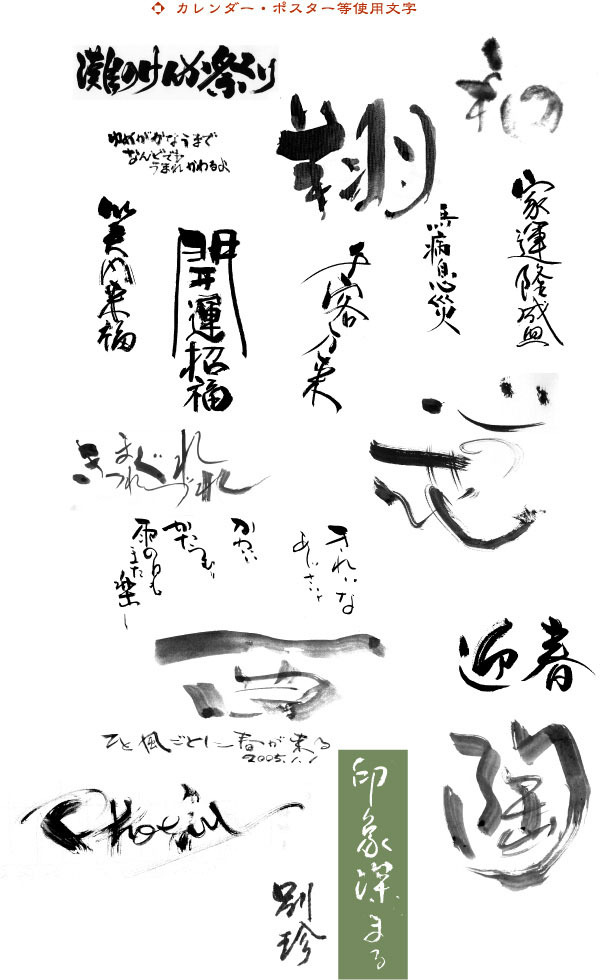 カレンダー・ポスター等使用文字
灘のけんか祭り
和
ゆめがかなうまで
なんどでも
うまれかわるよ
翔
家運隆盛
無病息災
千客万来
開運招福
笑門来福
きまぐれ
つれづれ
きれいな
あじさいよ
かわいい
かたつむり
雨の日も
また
楽し
迎春
ひと風ごとに春が来る
2005.1.1
陶
印象深まる
別珍